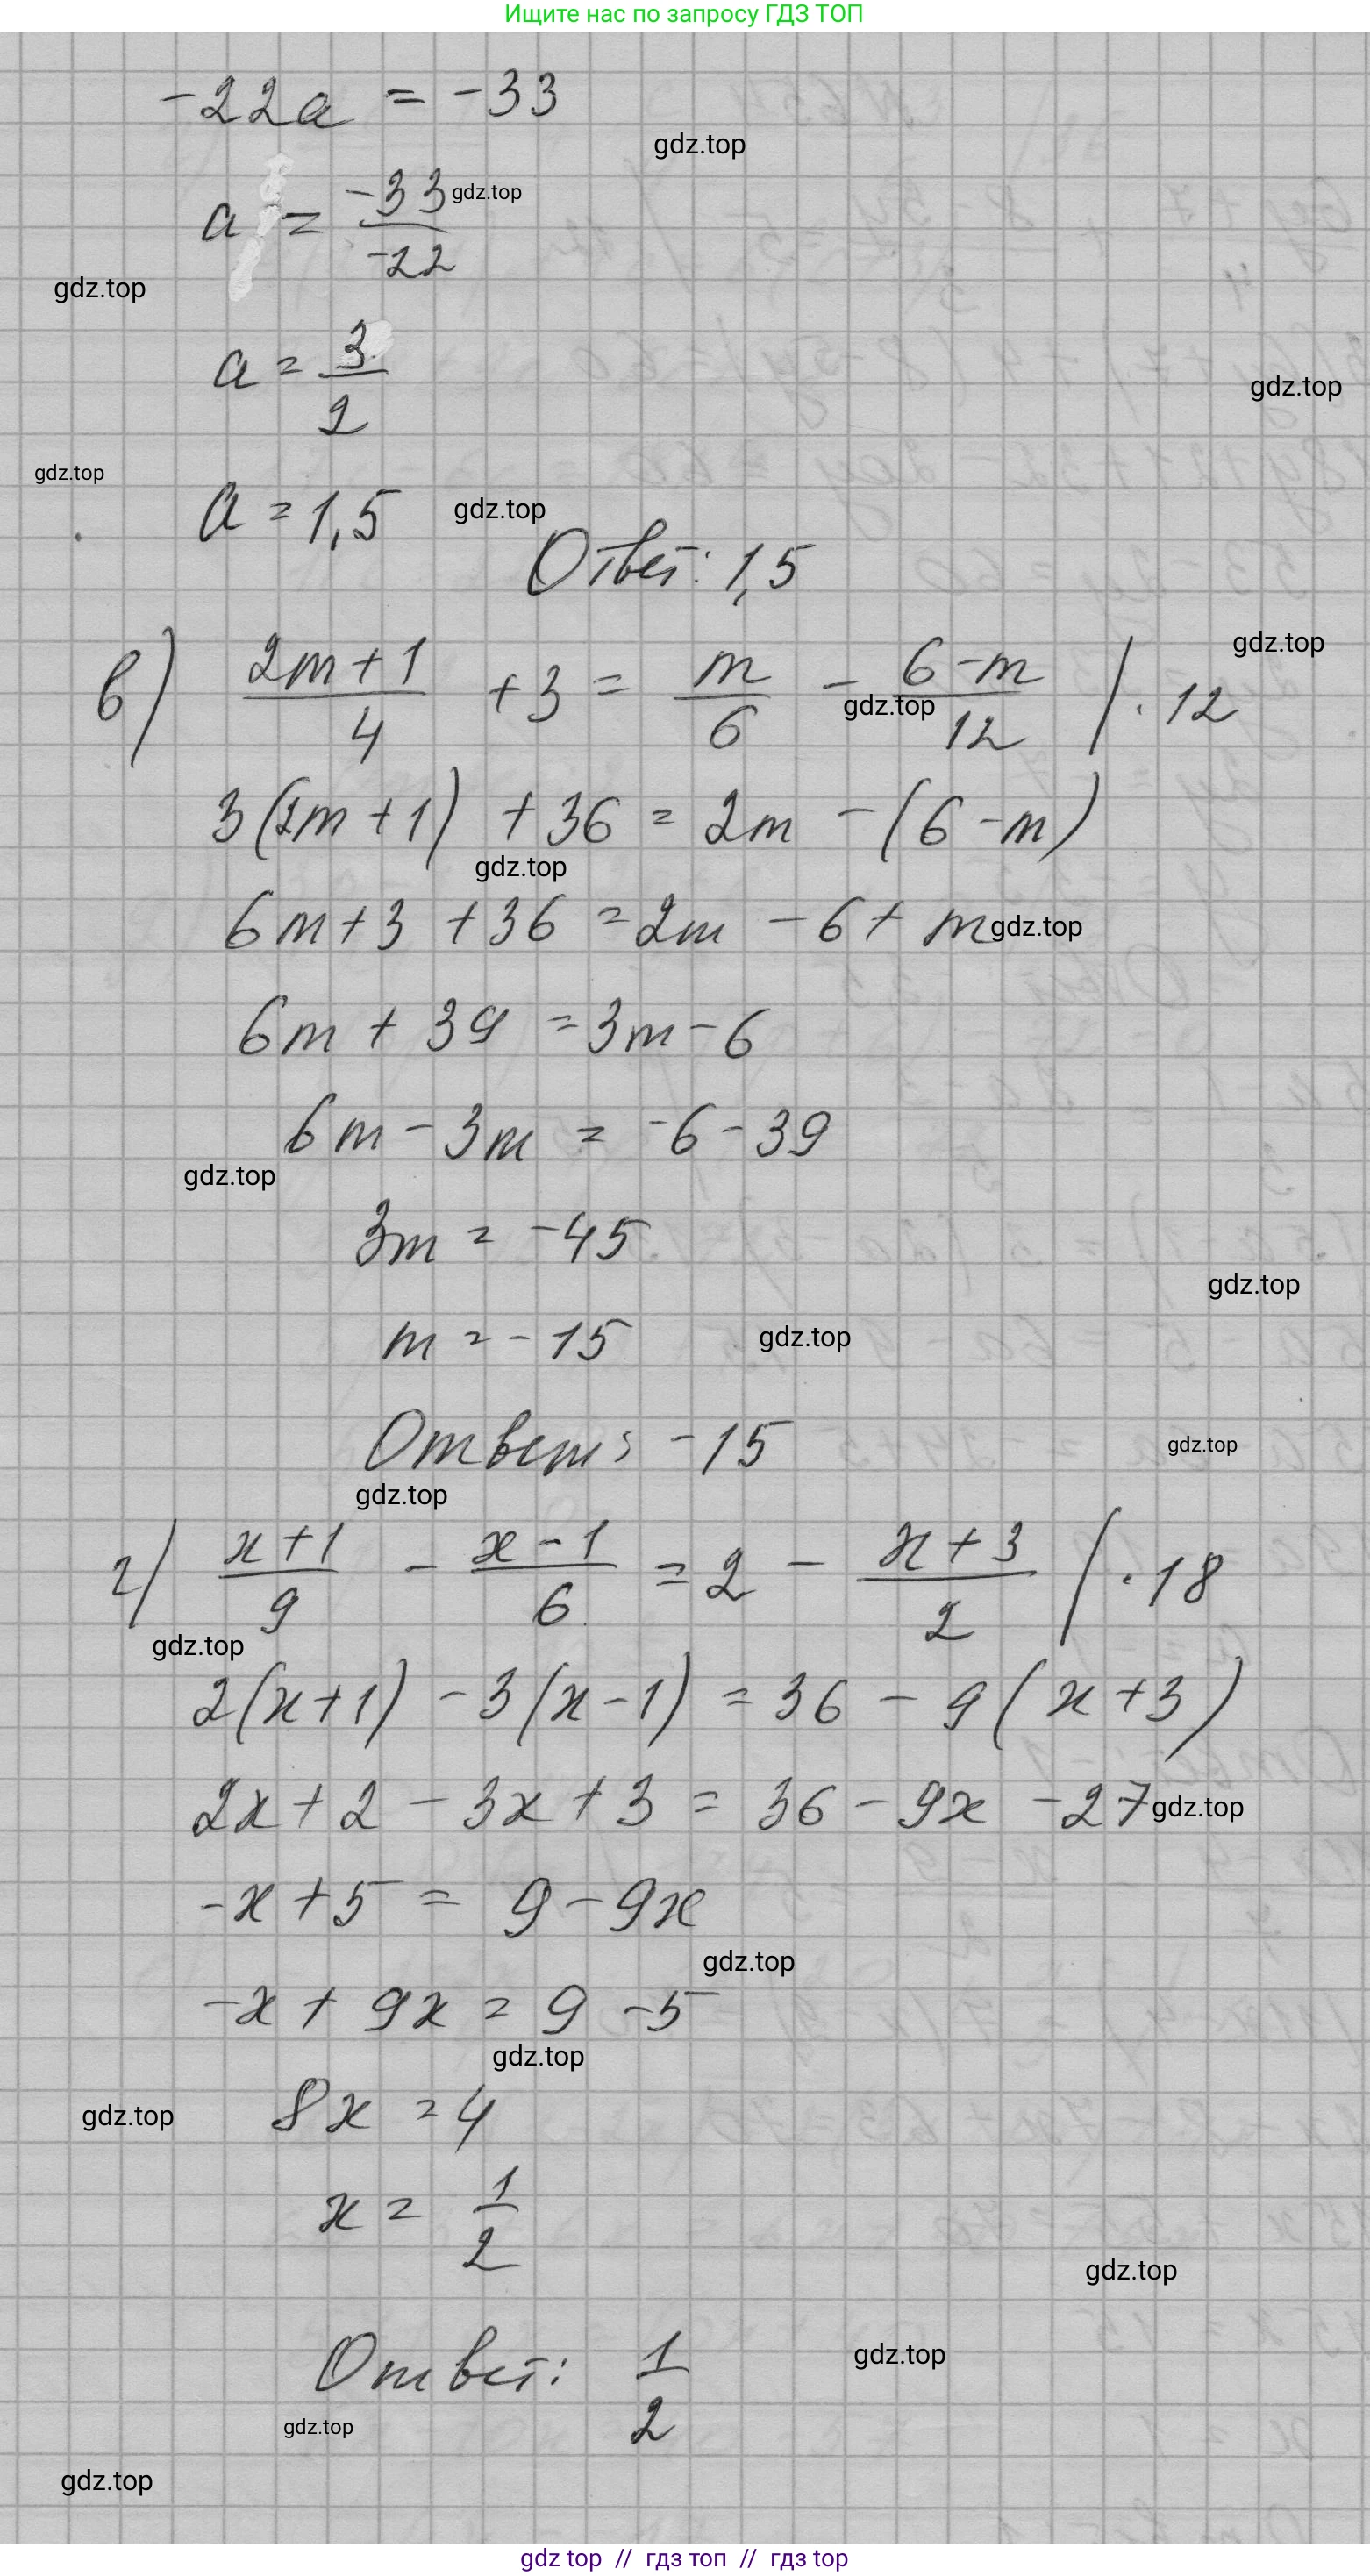 Ищите нас по запросу ГДЗ ТОП
-22a = -33
gdz.top
a = -33/-22
gdz.top
gdz.top
a = 3/2
gdz.top
gdz.top
a = 1,5
gdz.top
Ответ: 1,5
gdz.top
в) (2m+1)/4 + 3 = m/6 - (6-m)/12 / · 12
gdz.top
3(2m+1) + 36 = 2m - (6-m)
gdz.top
6m+3 + 36 = 2m - 6 + m
gdz.top
6m + 39 = 3m - 6
6m - 3m = -6 - 39
gdz.top
3m = -45
gdz.top
m = -15
gdz.top
Ответ: -15
gdz.top
gdz.top
г) (x+1)/9 - (x-1)/6 = 2 - (x+3)/2 / · 18
gdz.top
2(x+1) - 3(x-1) = 36 - 9(x+3)
2x+2 - 3x+3 = 36 - 9x - 27
gdz.top
-x+5 = 9 - 9x
gdz.top
-x + 9x = 9 - 5
gdz.top
8x = 4
gdz.top
x = 1/2
gdz.top
Ответ: 1/2
gdz.top
gdz.top
gdz.top
gdz top // гдз топ // гдз top